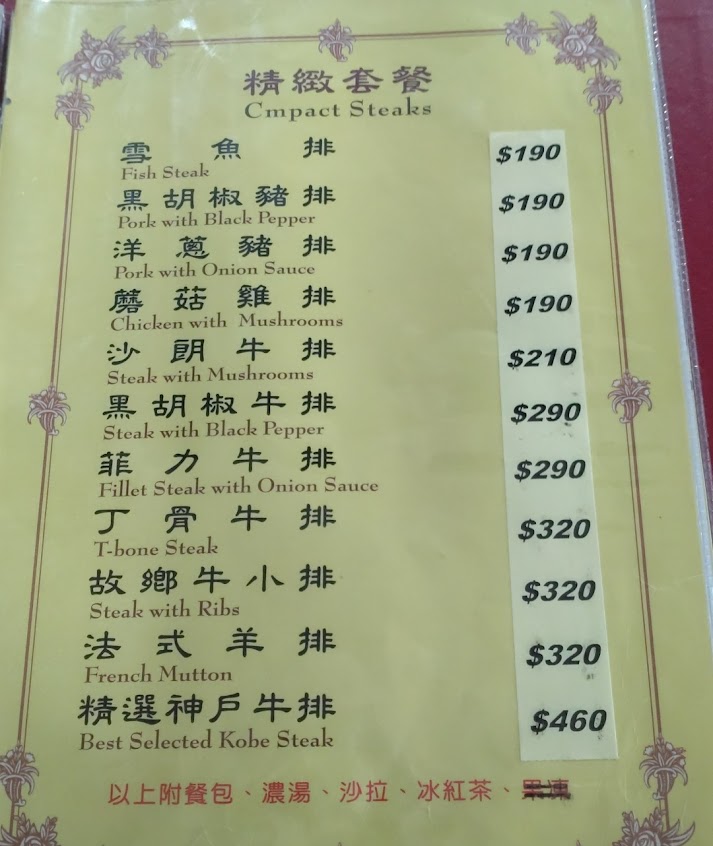 精緻套餐
Cmpact Steaks
雪魚排 $190
Fish Steak
黑胡椒豬排 $190
Pork with Black Pepper
洋蔥豬排 $190
Pork with Onion Sauce
蘑菇雞排 $190
Chicken with Mushrooms
沙朗牛排 $210
Steak with Mushrooms
黑胡椒牛排 $290
Steak with Black Pepper
菲力牛排 $290
Fillet Steak with Onion Sauce
丁骨牛排 $320
T-bone Steak
故鄉牛小排 $320
Steak with Ribs
法式羊排 $320
French Mutton
精選神戶牛排 $460
Best Selected Kobe Steak
以上附餐包、濃湯、沙拉、冰紅茶、果凍